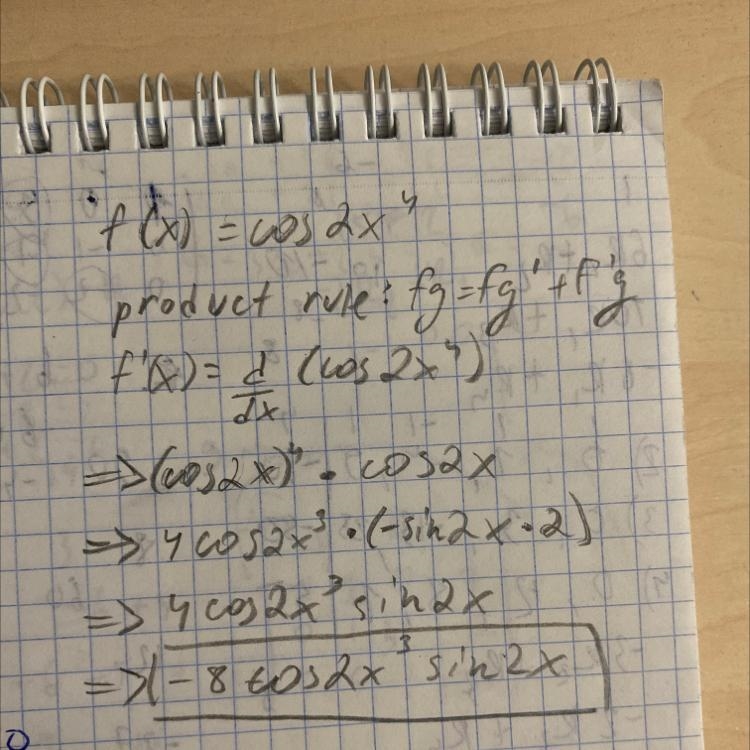 f(x) = cos2x⁴
product rule: fg = fg' + f'g
f'(x) = d/dx (cos2x⁴)
=> (cos2x)⁴ · cos2x
=> 4cos2x³ · (-sin2x · 2)
=> 4cos2x³ sin2x
=> -8 cos2x³ sin2x